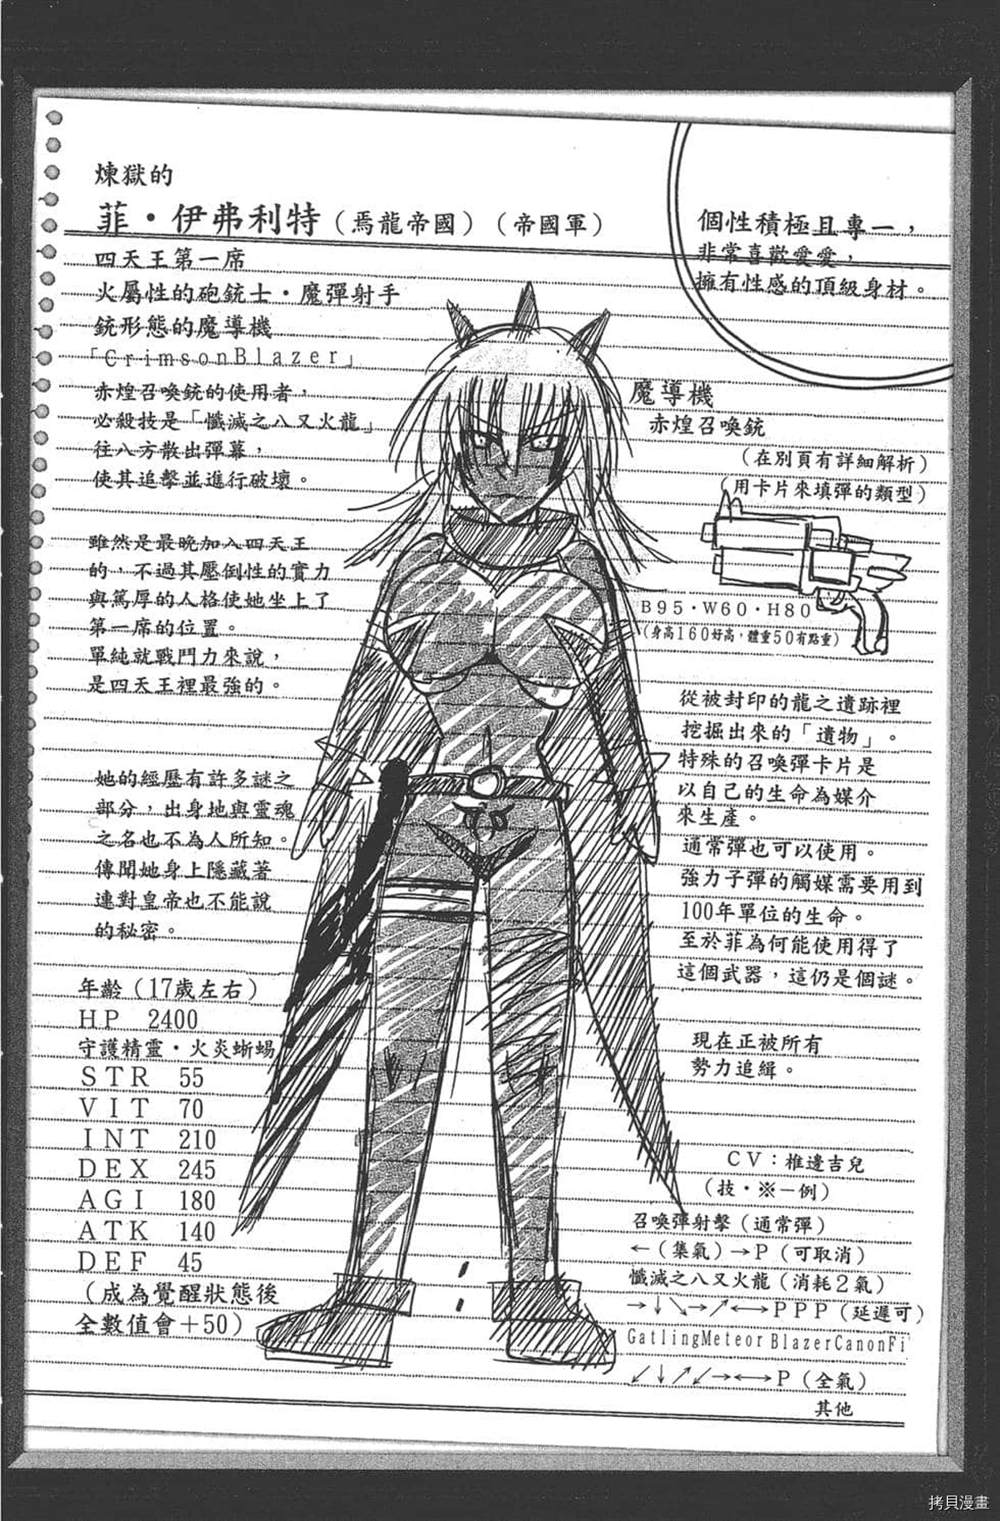 煉獄的
菲・伊弗利特（焉龍帝國）（帝國軍）
四天王第一席
火屬性的砲銃士・魔彈射手
銃形態的魔導機
「CrimsonBlazer」
赤煌召喚銃的使用者，
必殺技是「懺滅之八叉火龍」
往八方散出彈幕，
使其追擊並進行破壞。
雖然是最晚加入四天王
的，不過其壓倒性的實力
與篤厚的人格使她坐上了
第一席的位置。
單純就戰鬥力來說，
是四天王裡最強的。
她的經歷有許多謎之
部分，出身地與靈魂
之名也不為人所知。
傳聞她身上隱藏著
連對皇帝也不能說
的秘密。
年齡（17歲左右）
HP 2400
守護精靈・火炎蜥蜴
STR 55
VIT 70
INT 210
DEX 245
AGI 180
ATK 140
DEF 45
（成為覺醒狀態後
全數值會＋50）
個性積極且專一，
非常喜歡愛愛，
擁有性感的頂級身材。
魔導機
赤煌召喚銃
（在別頁有詳細解析）
（用卡片來填彈的類型）
B95・W60・H80
（身高160好高，體重50有點重）
從被封印的龍之遺跡裡
挖掘出來的「遺物」。
特殊的召喚彈卡片是
以自己的生命為媒介
來生產。
通常彈也可以使用。
強力子彈的觸媒需要用到
100年單位的生命。
至於菲為何能使用得了
這個武器，這仍是個謎。
現在正被所有
勢力追緝。
CV：椎邊吉兒
（技・※－例）
召喚彈射擊（通常彈）
←（集氣）→P（可取消）
懺滅之八叉火龍（消耗2氣）
→↓↘→↗←→PPP（延遲可）
GatlingMeteorBlazerCanonFi
↙↓↗↙→←→P（全氣）
其他
拷貝漫畫